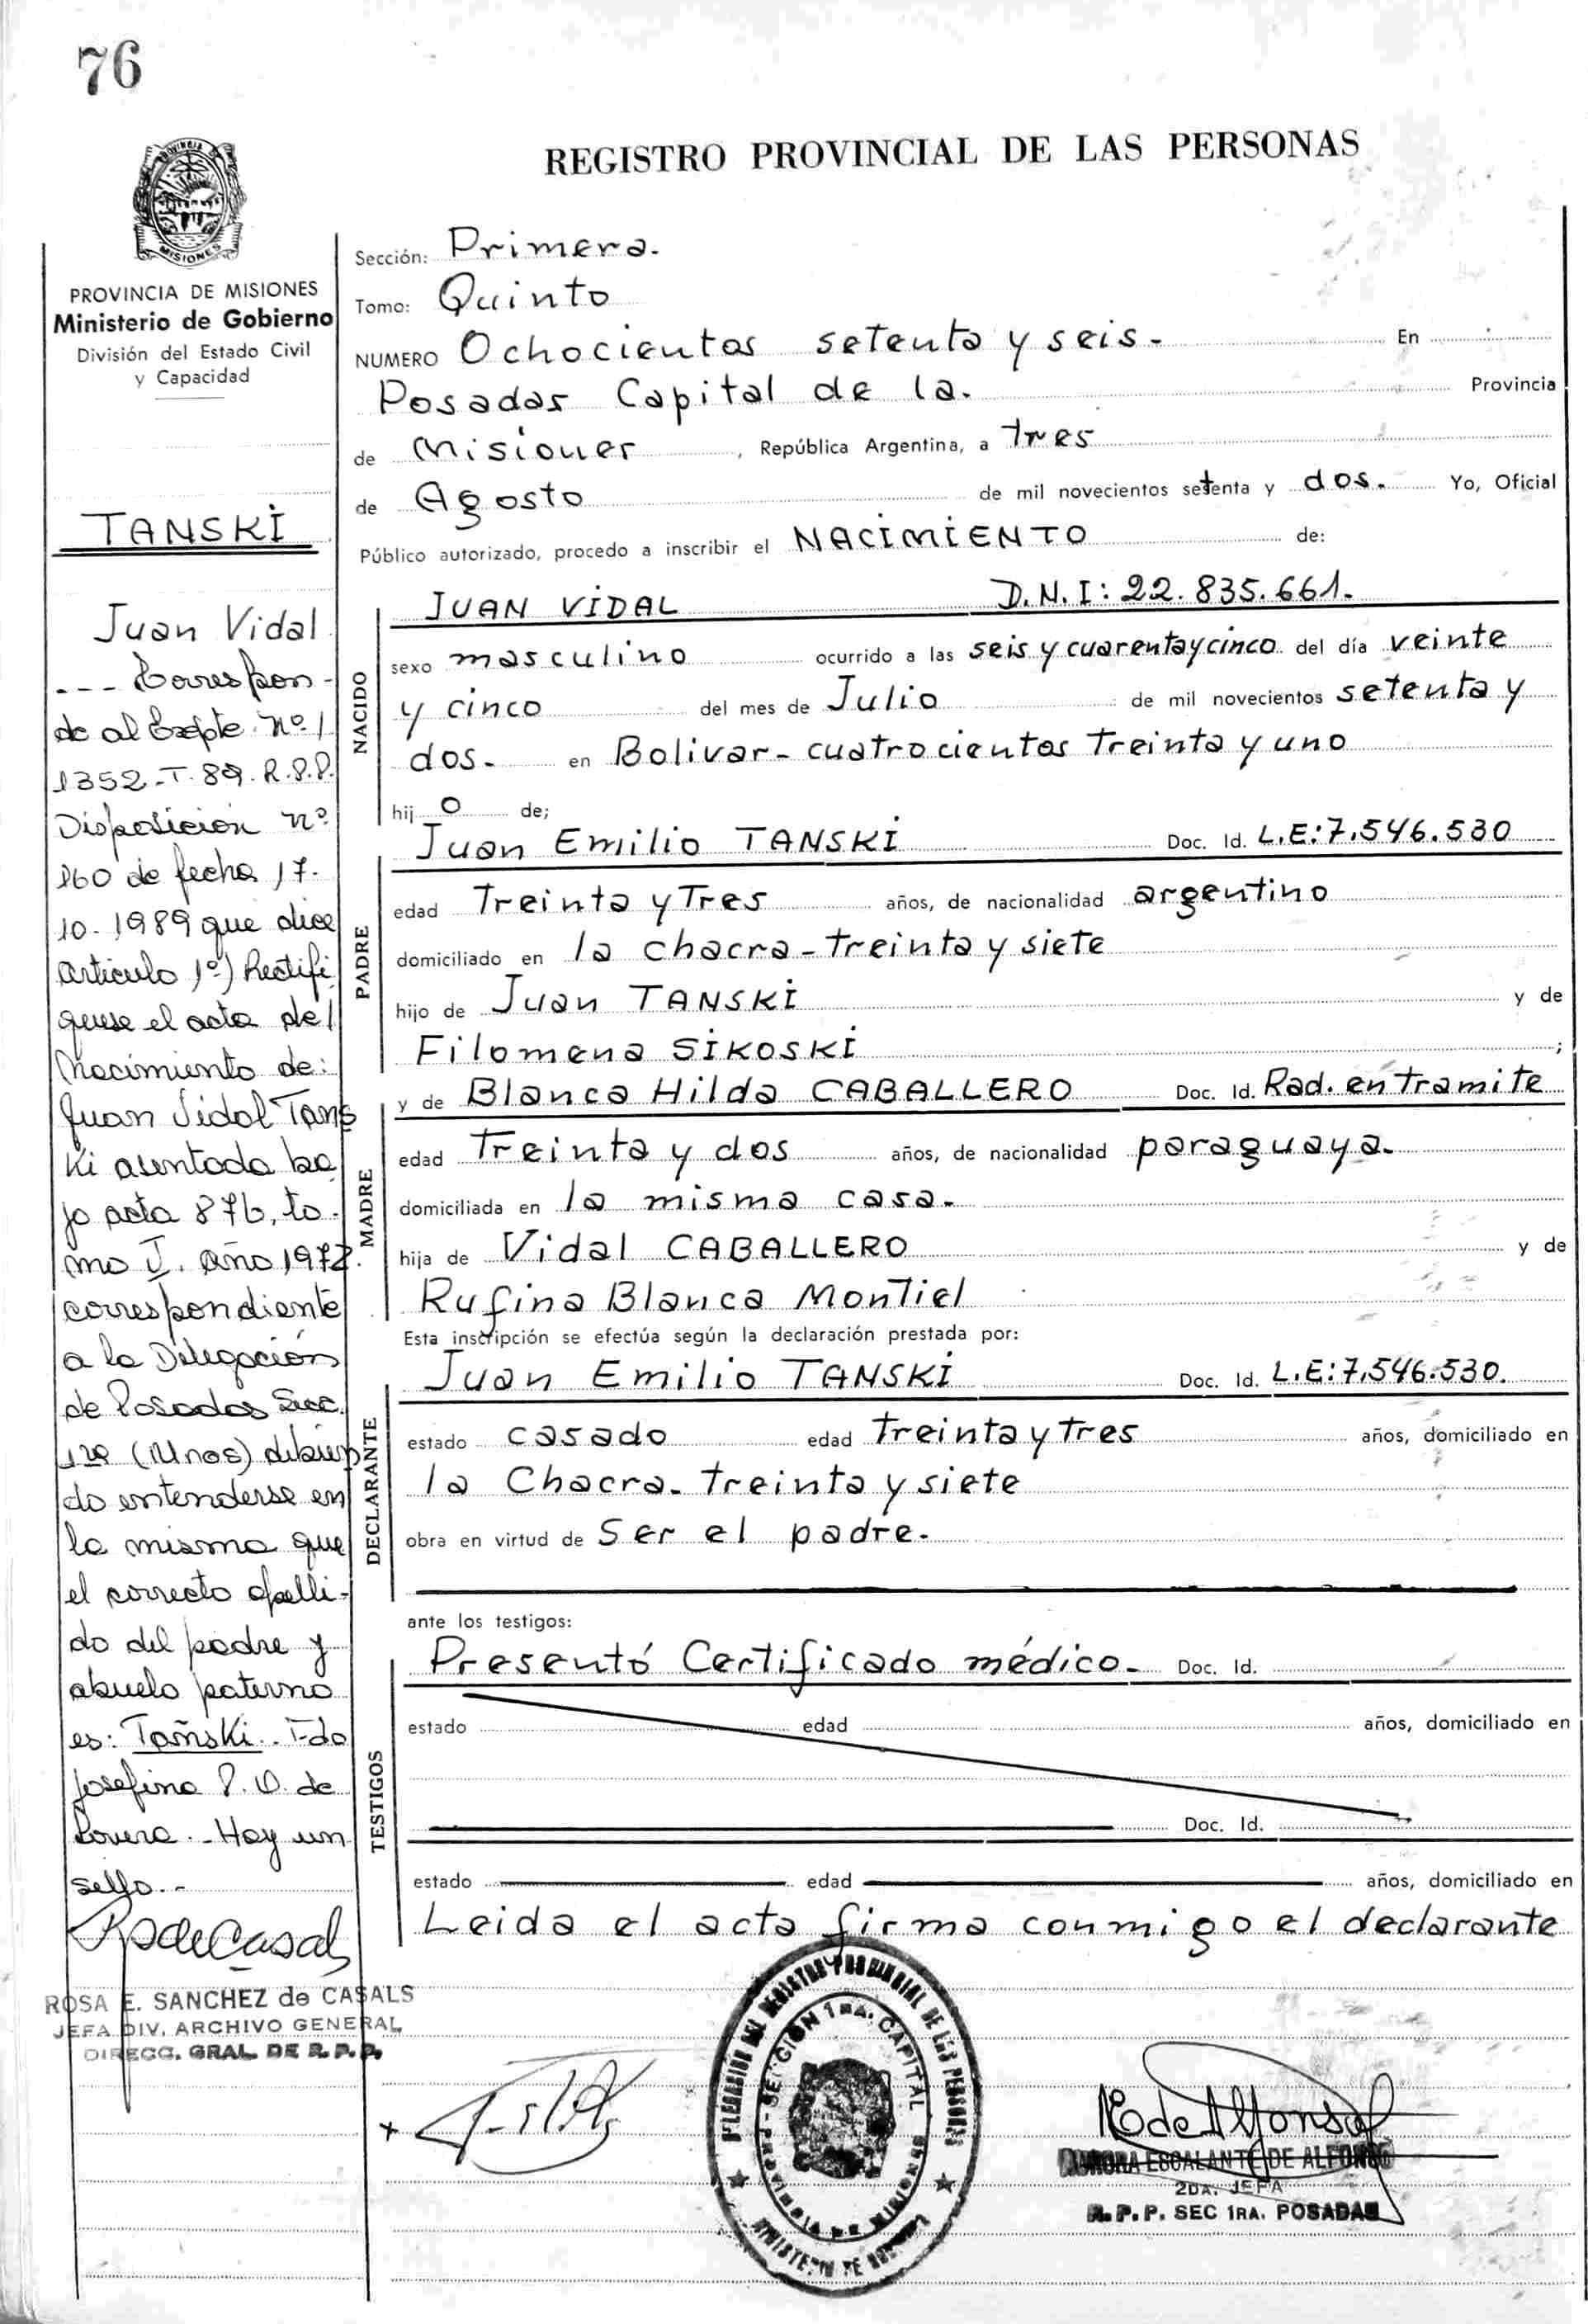 76
REGISTRO PROVINCIAL DE LAS PERSONAS
PROVINCIA DE MISIONES
Ministerio de Gobierno
División del Estado Civil
y Capacidad
TANSKI
Juan Vidal
--- Correspon-
de al Expte. Nº
1352-T-89. R.P.P.
Disposición nº
160 de fecha 17-
10-1989 que dice
artículo 1º) Rectifi
quese el acta de
Nacimiento de:
Juan Vidal Tans
ki asentada ba
jo acta 876, to-
mo V. año 1972.
correspondiente
a la Delegación
de Posadas Secc.
1ra (Unos) debien
do entenderse en
la misma que
el correcto apelli-
do del padre y
abuelo paterno
es: Tañski. Fdo
Josefina P. D. de
Lovera.- Hay un
sello.-
RSdeCasals
ROSA E. SANCHEZ de CASALS
JEFA DIV. ARCHIVO GENERAL
DIRECC. GRAL. DE R.P.P.
Sección: Primera.
Tomo: Quinto
NUMERO Ochocientos setenta y seis- En
Posadas Capital de la. Provincia
de Misiones, República Argentina, a tres
de Agosto de mil novecientos setenta y dos. Yo, Oficial
Público autorizado, procedo a inscribir el NACIMIENTO de:
NACIDO
JUAN VIDAL D.N.I: 22.835.661.
sexo masculino ocurrido a las seis y cuarenta y cinco del día veinte
y cinco del mes de Julio de mil novecientos setenta y
dos- en Bolivar- cuatrocientos treinta y uno
hij o de;
PADRE
Juan Emilio TANSKI Doc. Id. L.E:7.546.530
edad Treinta y Tres años, de nacionalidad argentino
domiciliado en la chacra- treinta y siete
hijo de Juan TANSKI y de
Filomena SIKOSKI ;
MADRE
y de Blanca Hilda CABALLERO Doc. Id. Rad. en tramite
edad Treinta y dos años, de nacionalidad paraguaya.
domiciliada en la misma casa-
hija de Vidal CABALLERO y de
Rufina Blanca Montiel
Esta inscripción se efectúa según la declaración prestada por:
DECLARANTE
Juan Emilio TANSKI Doc. Id. L.E:7.546.530.
estado casado edad treinta y tres años, domiciliado en
la Chacra- treinta y siete
obra en virtud de Ser el padre-
ante los testigos:
TESTIGOS
Presentó Certificado médico- Doc. Id.
estado edad años, domiciliado en
Doc. Id.
estado edad años, domiciliado en
Leida el acta firma conmigo el declarante
DELEGACIÓN DEL REGISTRO PROVINCIAL DE LAS PERSONAS
SECCIÓN 1RA. CAPITAL
PROVINCIA DE MISIONES
MINISTERIO DE GOBIERNO
AEdeAlfonso
AURORA ESCALANTE DE ALFONSO
2DA. JEFA
R.P.P. SEC 1RA. POSADAS